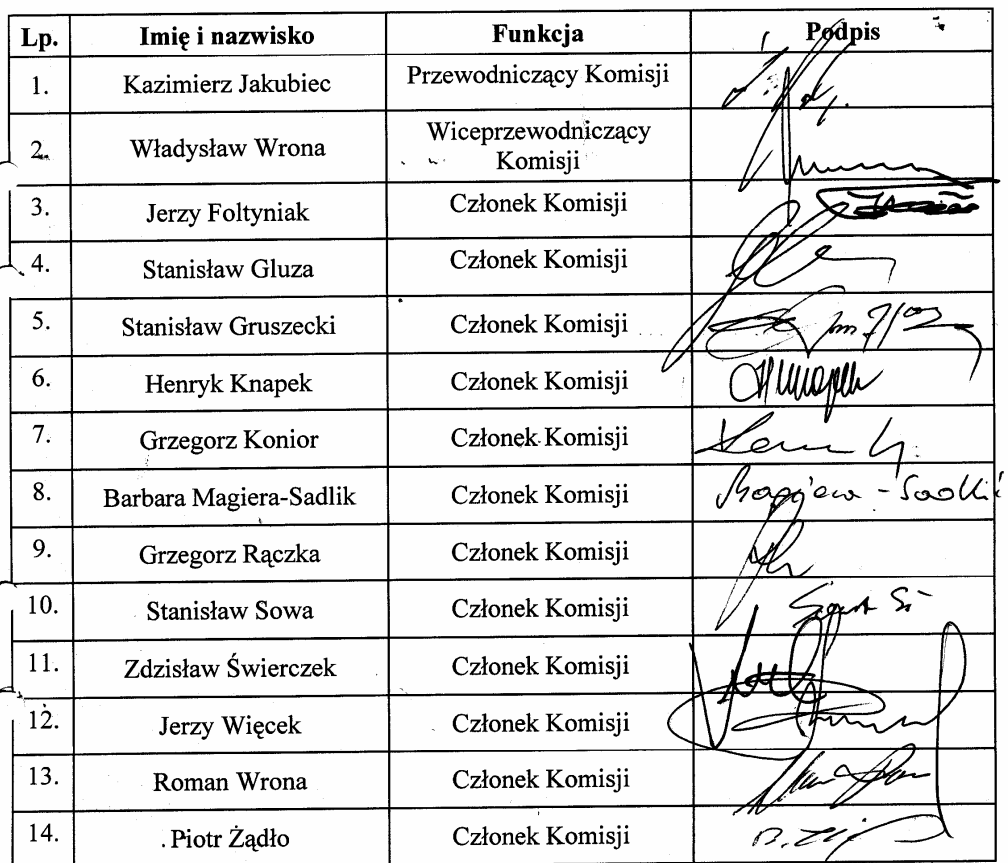 Lp. Imię i nazwisko Funkcja Podpis
1. Kazimierz Jakubiec Przewodniczący Komisji
2. Władysław Wrona Wiceprzewodniczący Komisji
3. Jerzy Foltyniak Członek Komisji
4. Stanisław Gluza Członek Komisji
5. Stanisław Gruszecki Członek Komisji
6. Henryk Knapek Członek Komisji
7. Grzegorz Konior Członek Komisji
8. Barbara Magiera-Sadlik Członek Komisji Magiera-Sadlik
9. Grzegorz Rączka Członek Komisji
10. Stanisław Sowa Członek Komisji
11. Zdzisław Świerczek Członek Komisji
12. Jerzy Więcek Członek Komisji
13. Roman Wrona Członek Komisji
14. Piotr Żądło Członek Komisji